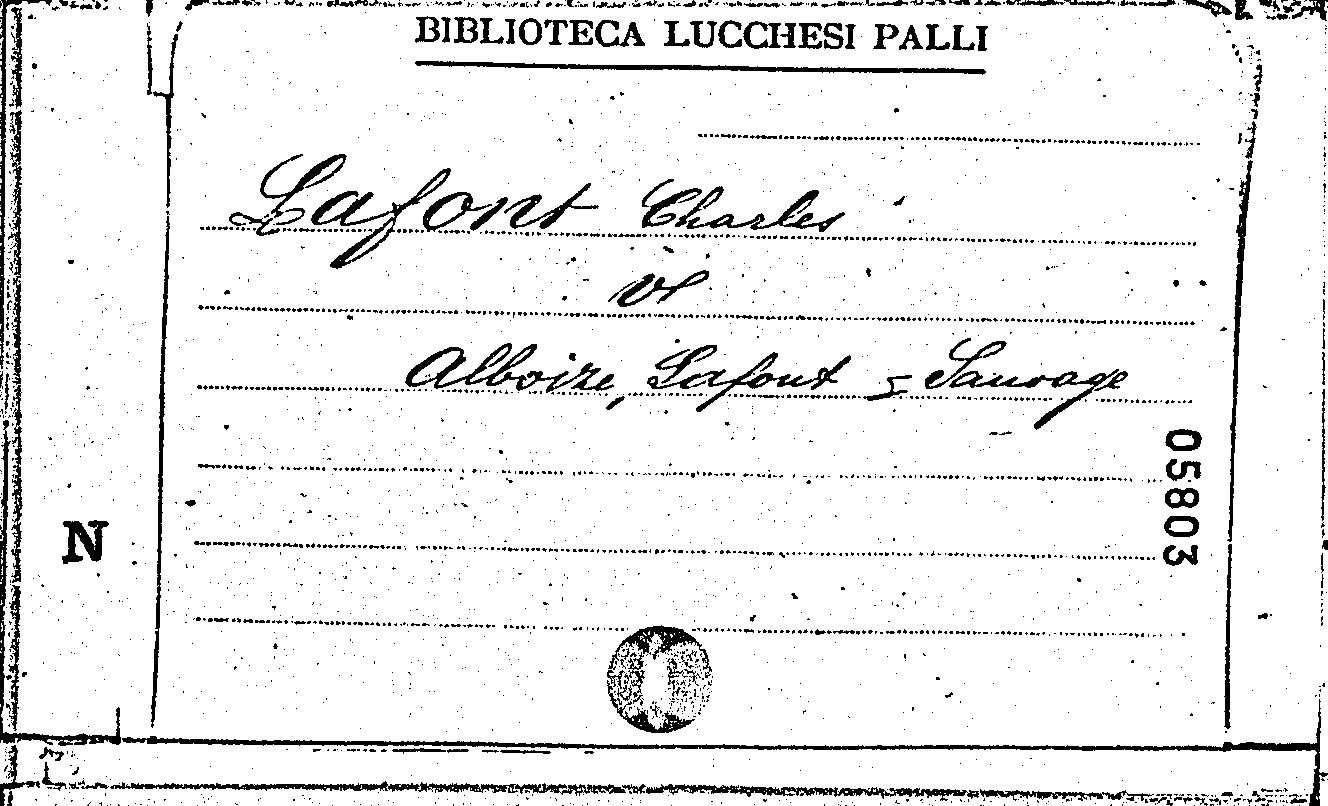 BIBLIOTECA LUCCHESI PALLI
Lafont Charles
vi
Alboize, Lafont e Sauvage
05803
N